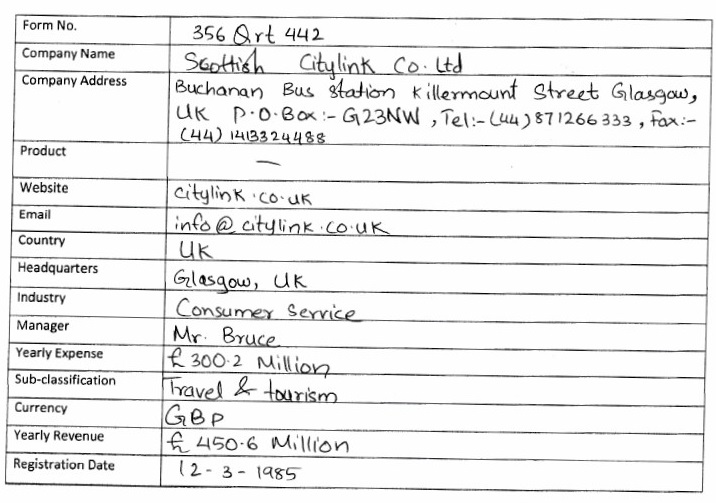 Form No. 356 Qrt 442
Company Name Scottish Citylink Co. Ltd
Company Address Buchanan Bus Station Killermount Street Glasgow,
UK P.O.Box:- G23NW, Tel:- (44)871266333, Fax:-
(44) 1413324488
Product —
Website citylink.co.uk
Email info@citylink.co.uk
Country UK
Headquarters Glasgow, UK
Industry Consumer Service
Manager Mr. Bruce
Yearly Expense £ 300.2 Million
Sub-classification Travel & tourism
Currency GBP
Yearly Revenue £ 450.6 Million
Registration Date 12-3-1985